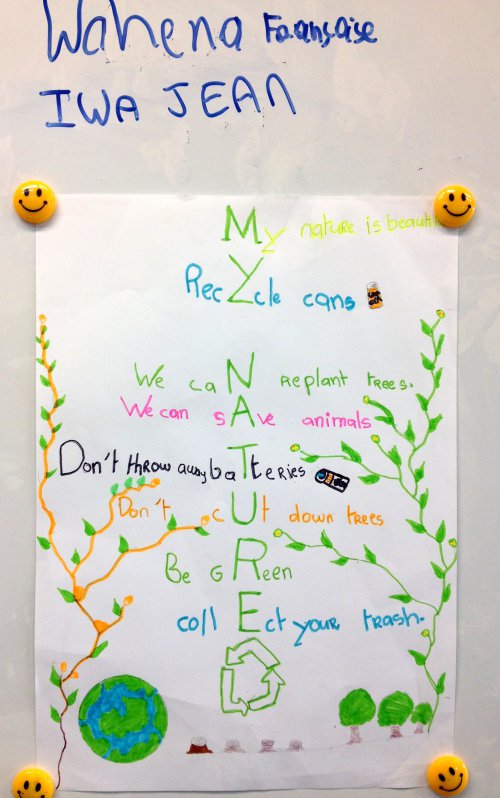 Wahena Françoise
IWA JEAN
My nature is beautiful
Recycle cans
We caN replant trees.
We can sAve animals
Don't throw away baTteries
Don't cUt down trees
Be GReen
collEct your trash.